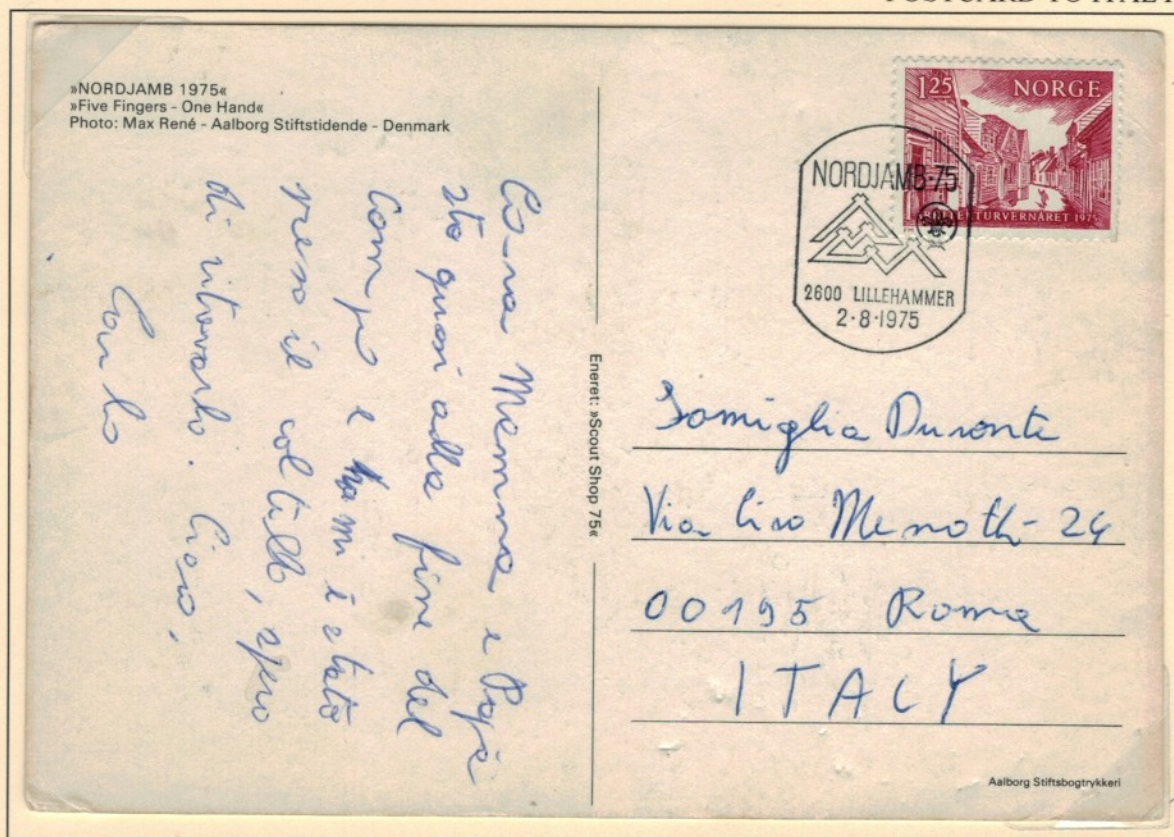 POSTCARD TO ITALY
»NORDJAMB 1975«
»Five Fingers - One Hand«
Photo: Max René - Aalborg Stiftstidende - Denmark
Cara Mamma e Papà
sto quasi alla fine del
Campo e mi è stato
preso il coltello, spero
di ritrovarlo. Ciao,
Carlo
Eneret: »Scout Shop 75«
125 NORGE
EKTURVERNÅRET 1975
NORDJAMB·75
2600 LILLEHAMMER
2·8·1975
Famiglia Durante
Via Ciro Menotti 24
00195 Roma
ITALY
Aalborg Stiftsbogtrykkeri